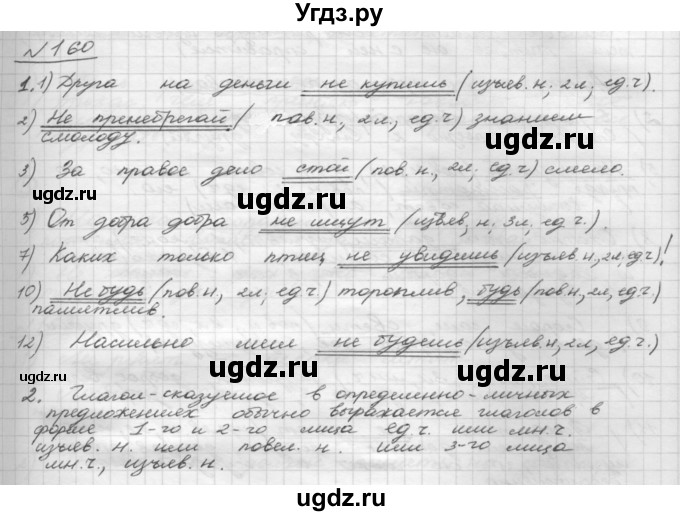 Угдз.ру
№160
1.1) Друга на деньги не купишь (изъяв.н; 2л; ед.ч).
2) Не пренебрегай (пов.н; 2л, ед.ч) знанием
смолоду.
ugdz.ru
3) За правое дело стой (пов.н., 2л, ед.ч) смело.
ugdz.ru ugdz.ru
5) От добра добра не ищут (изъяв, н; 3л, ед.ч.).
7) Каких только птиц не увидишь (изъяв.н., 2л. ед.ч)!
ugdz.ru
10) Не будь (пов.н, 2л; ед.ч.) тороплив, будь (пов.н, 2л, ед.ч)
памятлив.
12) Насильно мил не будешь (изъяв.н, 2л, ед.ч.)
ugdz.ru
2. Глагол-сказуемое в определенно-личных
предложениях обычно выражается глаголов в
форме 1-го и 2-го лица ед.ч. или мн.ч.
изъяв. н. или повел. н. или 3-го лица
мн.ч., изъяв. н.
ugdz.ru
ugdz.ru